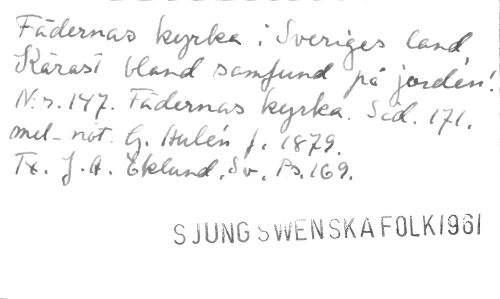 Fädernas kyrka i Sveriges land
Kärast bland samfund på jorden.
N:r. 147. Fädernas kyrka. Sid. 171.
mel-not. G. Hulén f. 1879.
Tx. J.A. Eklund. Sv. Ps. 169.
SJUNG SWENSKA FOLK 1961